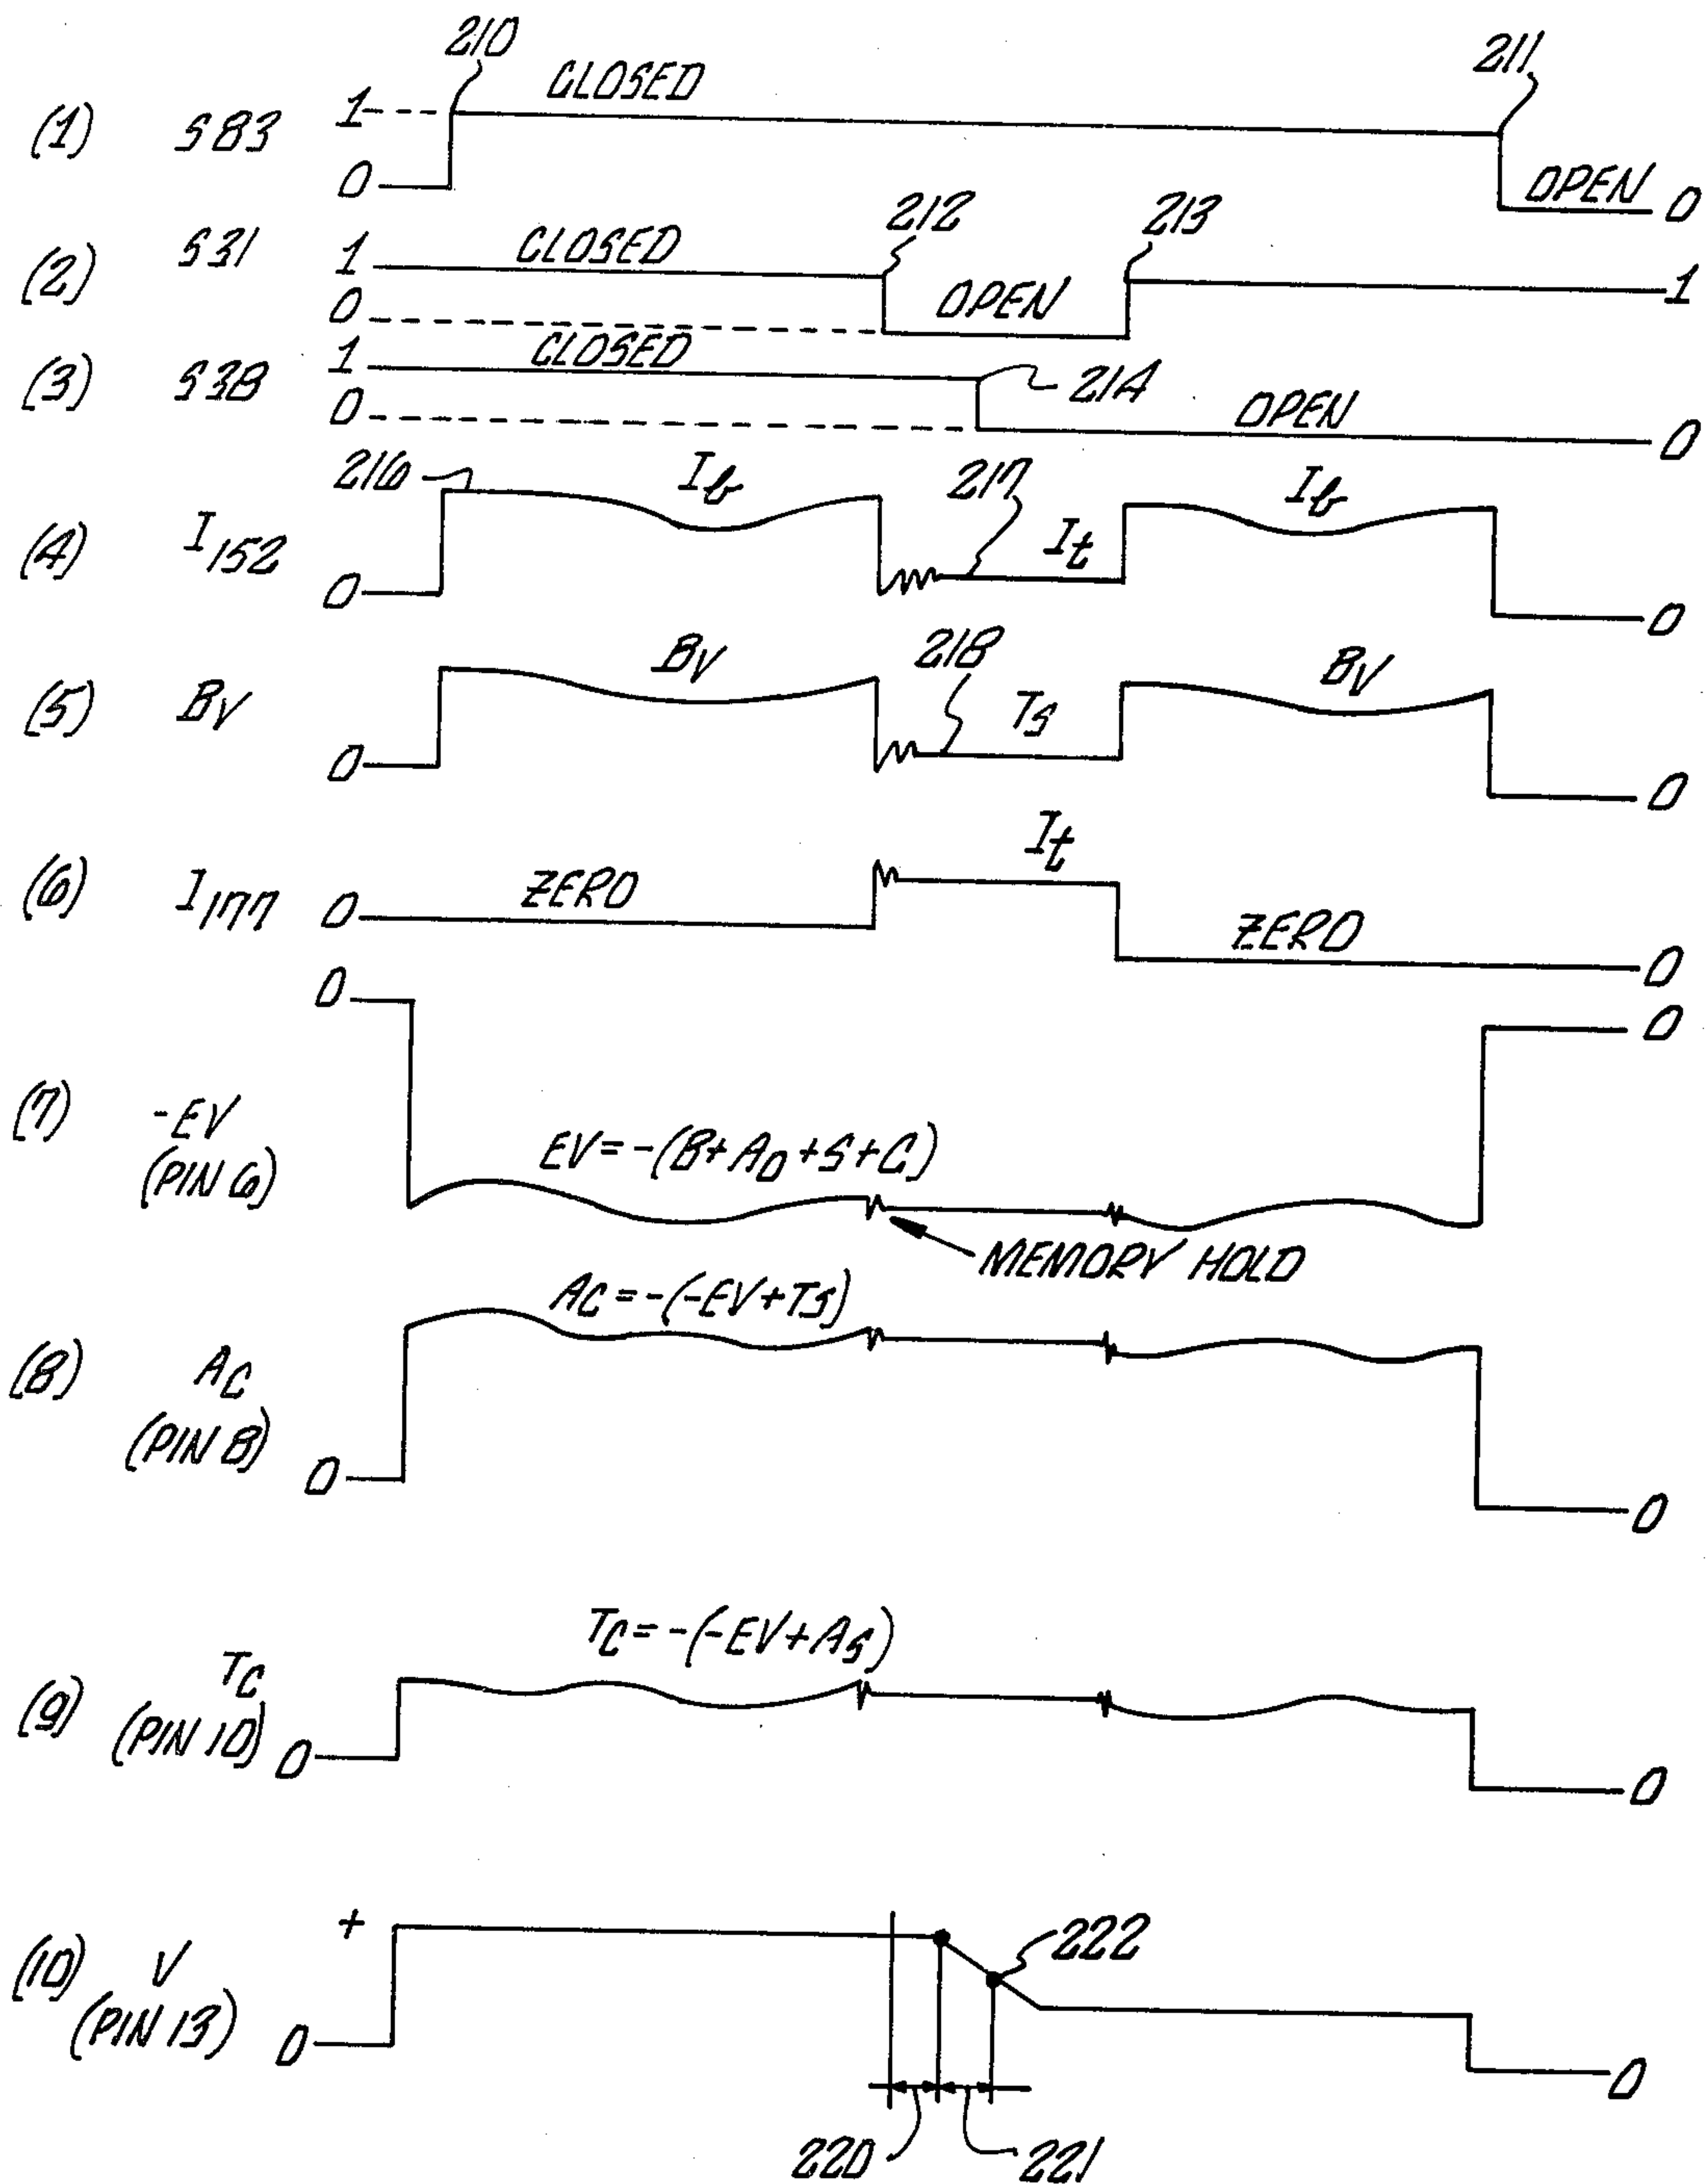 210
211
(1) S83 1 CLOSED
0 OPEN 0
212 213
(2) S31 1 CLOSED 1
0 OPEN
(3) S38 1 CLOSED 214
0 OPEN 0
216 Ib 217 It Ib
(4) I152
0 0
Bv 218 Ts Bv
(5) Bv
0 0
It
(6) I177 0 ZERO ZERO 0
0 0
(7) -EV
(PIN 6)
EV=-(B+AO+S+C)
MEMORY HOLD
AC=-(-EV+TS)
(8) AC
(PIN 8)
0 0
TC=-(-EV+AS)
(9) TC
(PIN 10) 0 0
+ 222
(10) V
(PIN 13) 0 0
220 221